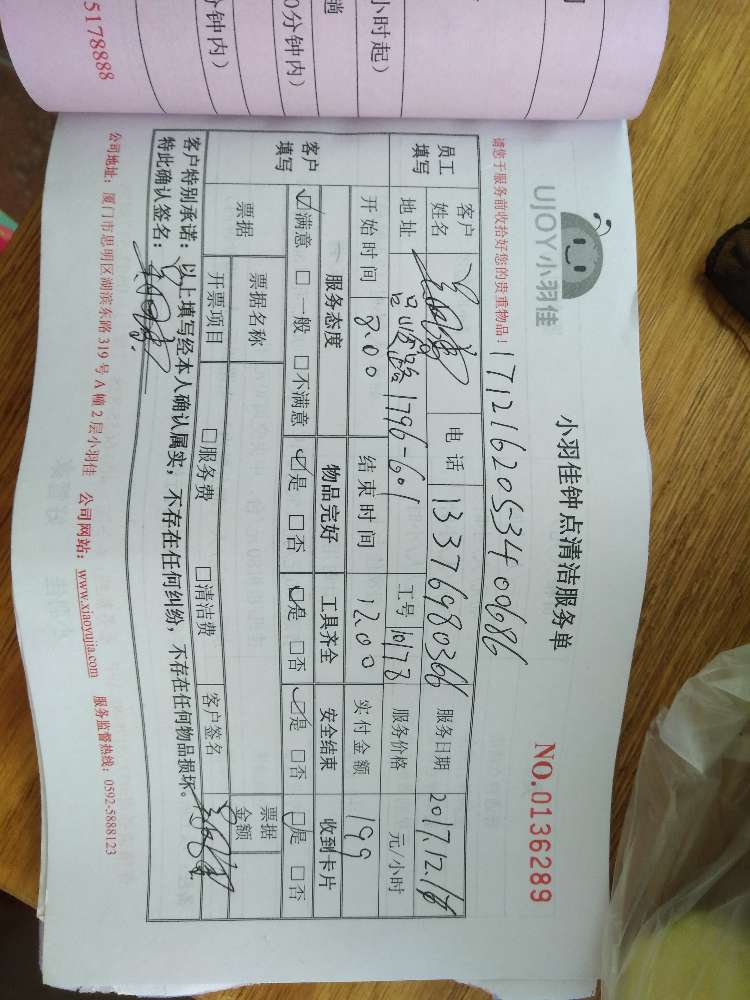 小时起）
0分钟内）
分钟内）
5178888
UJOY小羽佳
小羽佳钟点清洁服务单
NO.0136289
请您于服务前收拾好您的贵重物品！
171216205340686
员工填写 客户姓名 电话 13376980366 服务日期 2017.12.18
地址 1796-601 工号 10178 服务价格 元/小时
开始时间 8.00 结束时间 12.00 实付金额 199
客户填写 服务态度 物品完好 工具齐全 安全结束 收到卡片
☑满意 □一般 □不满意 ☑是 □否 ☑是 □否 ☑是 □否 ☑是 □否
票据 票据名称 票据金额
开票项目 □服务费 □清洁费 客户签名
客户特别承诺：以上填写经本人确认属实，不存在任何纠纷，不存在任何物品损坏。
特此确认签名：
公司地址：厦门市思明区湖滨东路319号A幢2层小羽佳 公司网站：www.xiaoyujia.com 服务监督热线：0592-5888123